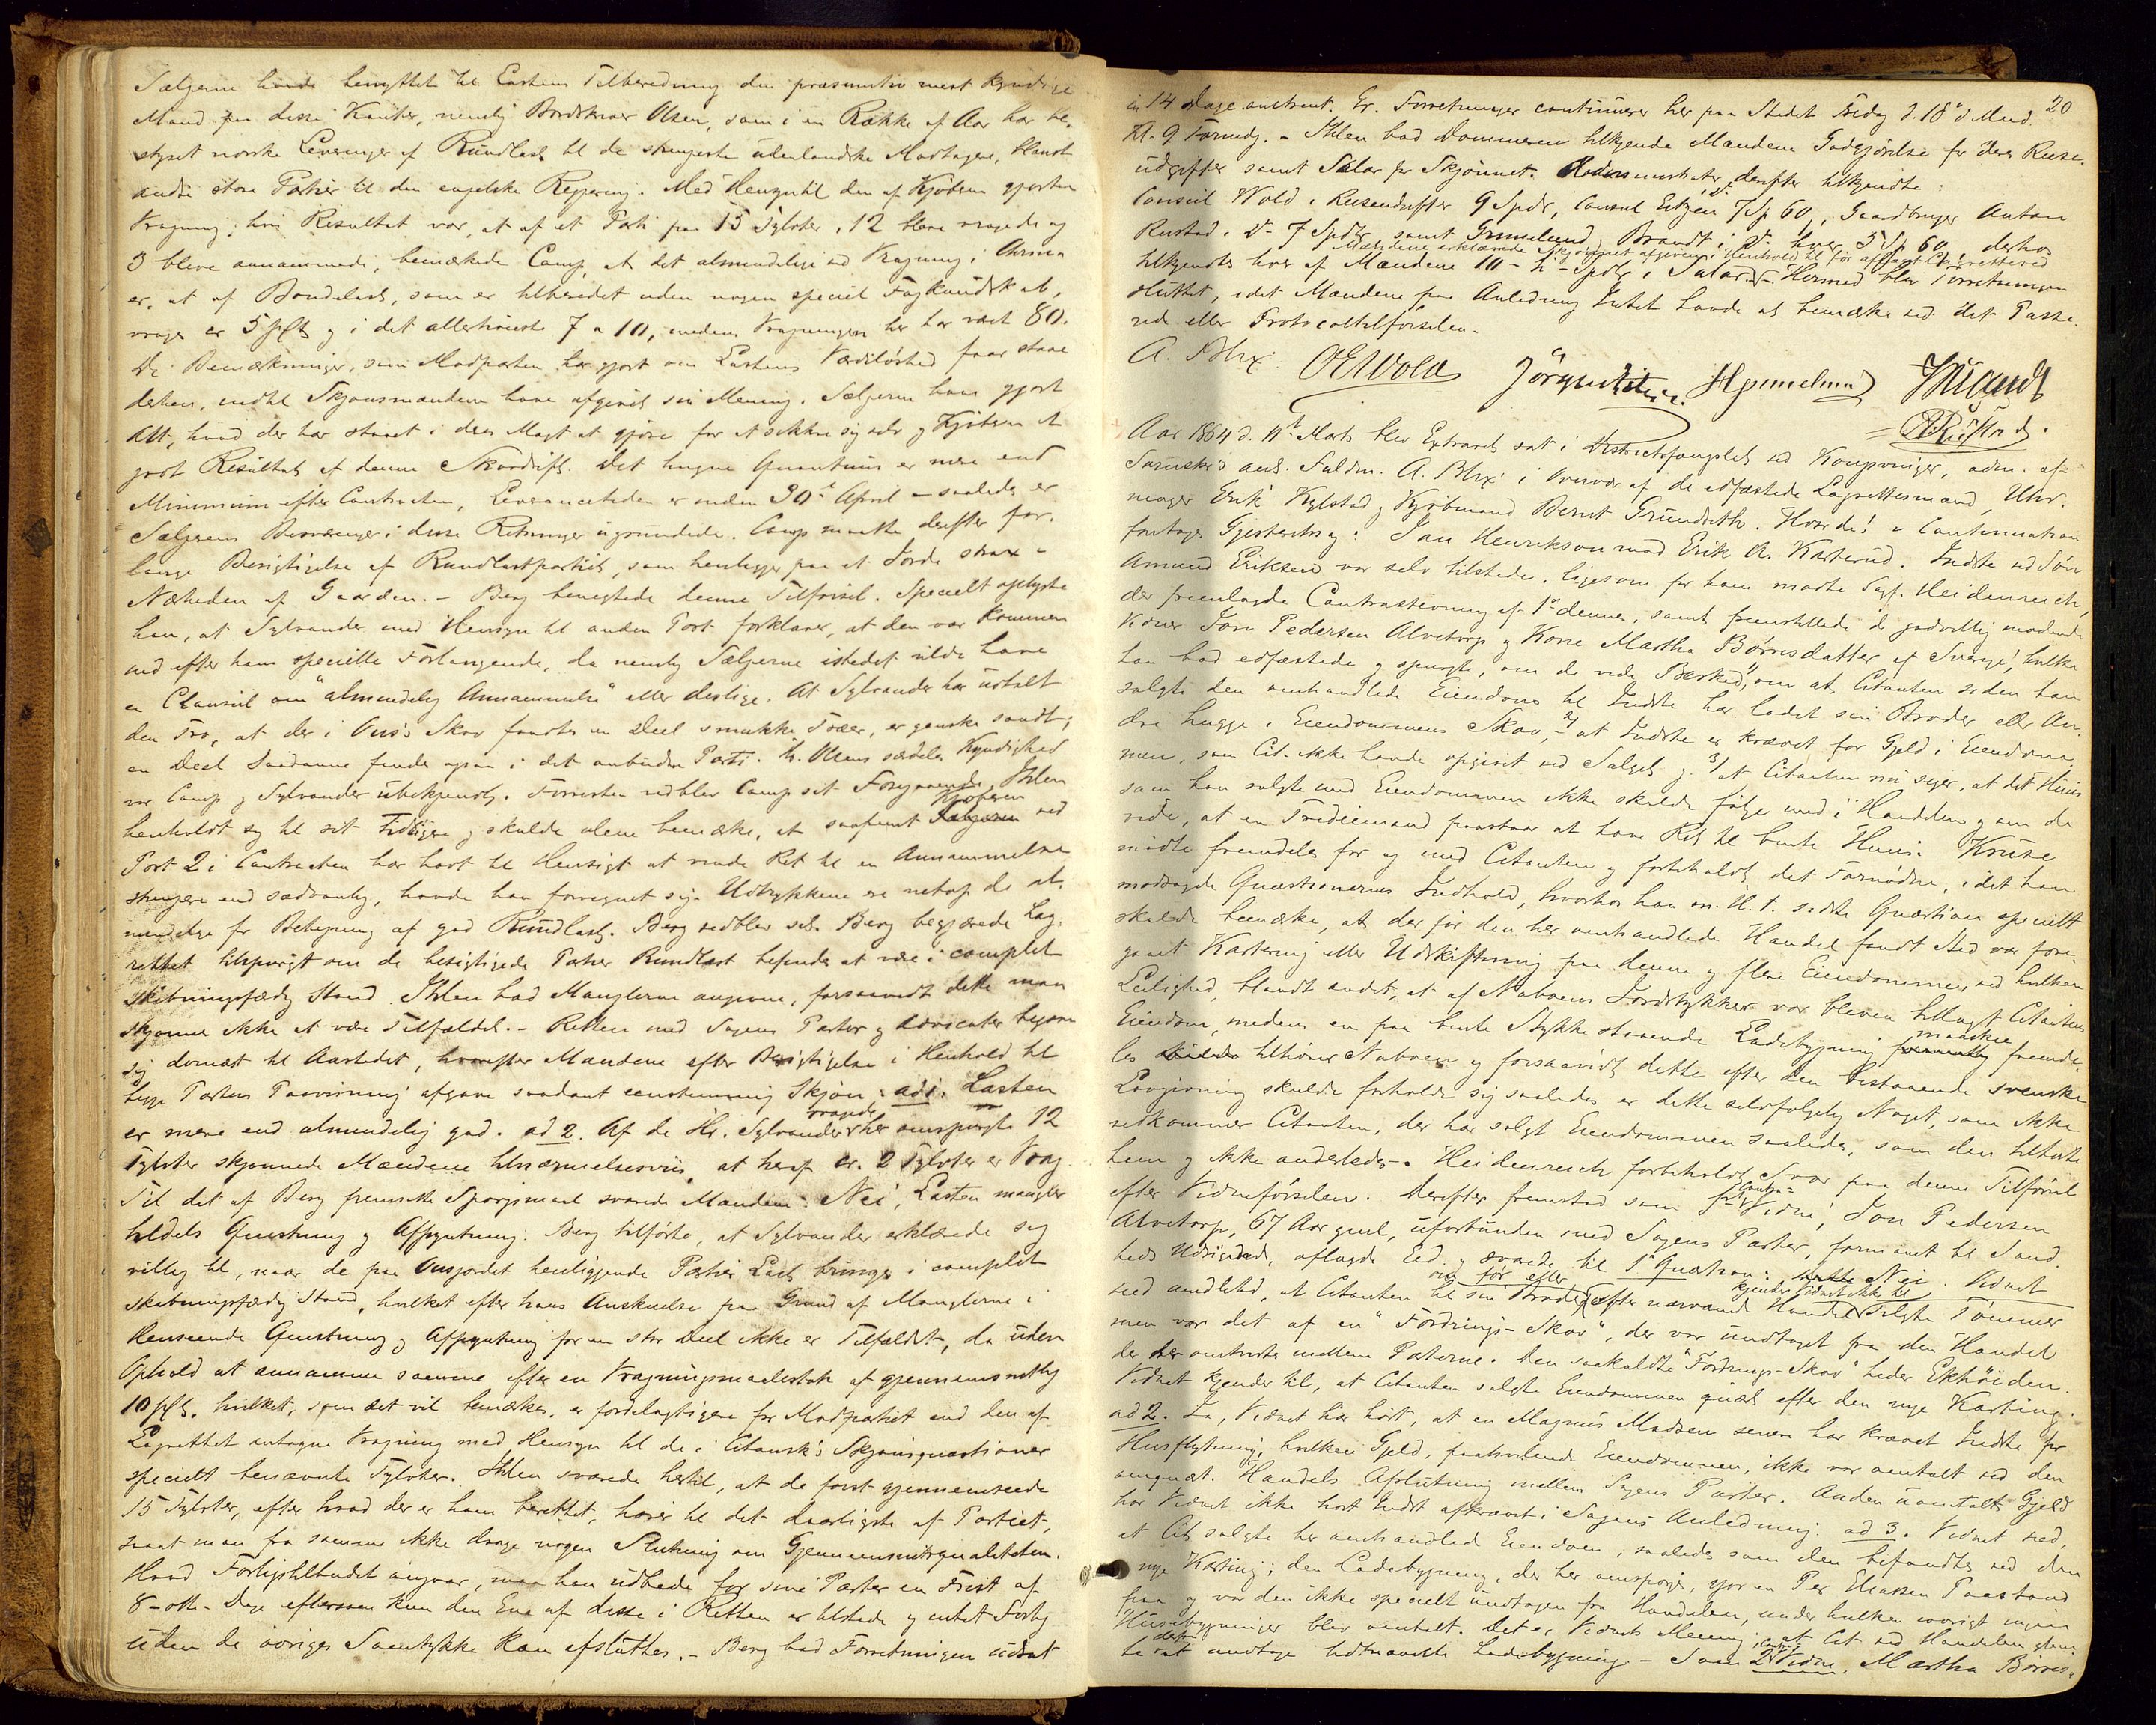 Sælgerne havde benyttet til Lastens Tilberedning den præsumtiv mest kyndige
Mand paa disse Kanter, nemlig Olsen, som i en Række af Aar har be-
styret norske Leveringer af Rundlast til de strengeste udenlandske Modtagere, blandt
andre store Partier til den engelske Regjering. Med Hensyn til den af Kjøberen gjorte
Vragning, hvis Resultat var, at af et Parti paa 15 Tylvter, 12 bleve vragede og
3 bleve annammede, bemærkede Camp, at det almindelige ved Vragning i
er, at af Bondelast, som er tilberedet uden nogen speciel Fagkundskab,
vrages er 5 pCt og i det allerhøieste 7 a 10, medens Vragningen her har været 80.
De Bemærkninger, som Modparten har gjort om Lastens Værdiløshed faar staae
derhen, indtil Skjønsmændene have afgivet sin Mening. Sælgerne have gjort
Alt, hvad der har staaet i deres Magt at gjøre for at sikkre sig selv og Kjøberen et
godt Resultat af denne Skovdrift. Det hugne Qvantum er mere end
Minimum efter Contracten, Leverancetiden er inden 30te April – saaledes er
Sælgerens Besværinger i disse Retninger ugrundede. Camp maatte derefter for-
lange Besigtigelse af Rundlastpartiet, som henligger paa et Jorde strax i
Nærheden af Gaarden. – Berg benegtede denne Tilførsel. Specielt oplyste
han, at Sylvander med Hensyn til anden Post forklarer, at den var kommen
ind efter hans specielle Forlangende, da nemlig Sælgerne istedet vilde have
en Clausul om "almindelig Annammelse" eller deslige. At Sylvander har udtalt
den Tro, at der i Skov fandtes en Deel smukke Træer, er ganske sandt,
en Deel Saadanne findes ogsaa i det anbudne Parti. Hr. Olsens særdeles Kyndighed
var Camp og Sylvander ubekjendt. Forresten vedblev Camp sit Foregaaende, Ihlen
henholdt sig til sit Tidligere og skulde alene bemærke, at saafremt Kjøberen ved
Post 2 i Contracten har havt til Hensigt at vinde Ret til en Annammelse
strengere end sædvanlig, havde han forregnet sig. Udtrykkene ere netop de al-
mindelige for Betegning af god Rundlast. Berg vedblev sit. Berg begjærede Lag-
rettet tilspurgt om de besigtigede Partier Rundlast befindes at være i complet
skibningsfærdig Stand. Ihlen bad Manglerne angivne, forsaavidt dette man
skjønner ikke at være Tilfældet. – Retten med Sagens Parter og Advocater begave
sig dernæst til Aastedet, hvorefter Mændene efter Besigtigelse i Henhold til
begge Parters Paavisning afgave saadant eenstemmig Skjøn: ad 1. Lasten
er mere end almindelig god. ad 2. Af de Hr. Sylvander vragede her omspurgte 12
Tylvter skjønnede Mændene tilnærmelsesviis, at heraf cr. 2 Tylvter er Vrag
Til det af Berg fremsatte Spørgsmaal svarede Mændene: Nei, Lasten mangler
tildels Qvistning og Afpyntning. Berg tilførte, at Sylvander erklærede sig
villig til, naar de paa henliggende Partier Last bringes i complet
skibningsfærdig Stand, hvilket efter hans Anskuelse paa Grund af Manglerne i
Henseende Qvistning og Afpyntning for en stor Deel ikke er Tilfældet, da uden
Ophold at annamme samme efter en Vragningsmaalestok af gjennemsnitlig
10 pCt. hvilket, som det vil bemærkes, er fordelagtigere for Modpartiet end den af
Lagrettet antagne Vragning med Hensyn til de i Citantsk's Skjønsqvæstioner
specielt benævnte Tylvter. Ihlen svarede hertil, at de først gjennemseede
15 Tylvter, efter hvad der er ham berettet, hører til det daarligste af Partiet,
saaat man fra samme ikke drage nogen Slutning om Gjennemsnitsqvaliteten.
Hvad Forligstilbudet angaar, maa han udbede for sine Parter en Frist af
8 – otte – Dage eftersom kun den Ene af disse i Retten er tilstede og intet Forlig
uden de øvriges Samtykke kan afsluttes. – Berg bad Forretningen udsat
20
i 14 Dage. Forretninger continuerer her paa Stedet Fredag d. 18de d. Mnd.
Kl. 9 Formdg. – Ihlen bad Dommeren tilkjende Mændene Godtgjørelse for deres Reise-
udgifter samt Salar for Skjønnet. derefter tilkjendte:
Consul Wold i Reiseudgifter 9 Spdr, Consul 7 Sp 60, Gaardbruger Anton
Rustad i do 7 Spdlr samt Grimelund, Brandt i do hver 5 Sp. 60, derhos
Mændene erklærede Skjønnet afgivet i Henhold til før aflagt Ed
tilkjendtes hver af Mændene 10 – ti – Spdlr i Salar. – Hermed blev Forretningen
sluttet, idet Mændene paa Anledning Intet havde at bemærke ved det Passe-
rede eller Protocoltilførselen.
A. Blix OEWold HGrimelund JBrandt
ARustad.
Aar 1864 d. 11te Marts blev Extraret sat i Districtsfængslet ved Kongsvinger, adm. af
Sorenskr's aut. Fuldm. A. Blix i Overvær af de edfæstede Lagrettesmænd, Uhr-
mager Erik Kylstad og Kjøbmand Bernt Grundseth. Hvorda! i Continuation
foretages Gjesteretssag: Jan Henrikson mod Erik A. Kasterud. Indste ved Søn
Amund Eriksen var selv tilstede, ligesom for ham mødte Sagf. Heidenreich,
der fremlagde Contrastevning af 1ste dennes, samt fremstillede de godvillig mødende
Vidner Jon Pedersen Alvetorp og Kone Martha Børresdatter af Sverige!, hvilke
han bad edfæstede og spurgte, om de vide Besked, 1) om at Citanten siden han
solgte den omhandlede Eiendom til Indste har ladet sin Broder eller An-
dre hugge i Eiendommens Skov, 2) at Indste er krævet for Gjeld i Eiendom-
men, som Cit. ikke havde opgivet ved Salget, og 3) at Citanten nu siger, at det Huus
som han solgte med Eiendommen ikke skulde følge med i Handelen og om de
vide, at en Trediemand paastaar at have Ret til bemte Huus. Kruse
mødte fremdeles for og med Citanten og forbeholdt det Fornødne, idet han
modsagde Qvæstionernes Indhold, hvorhos han m. H. t. sidste Qvæstion specielt
skulde bemærke, at der før den her omhandlede Handel fandt Sted var fore-
gaaet Kartering eller Udskiftning paa denne og flere Eiendomme, ved hvilken
Leilighed, blandt andet, at af Naboens Jordstykker var bleven tillagt Citantens
Eiendom, medens en paa bemte Stykke staaende Ladebygning maaskee fremde-
les tilhører Naboen og forsaavidt dette efter den bestaaende svenske
Lovgivning skulde forholde sig saaledes er dette selvfølgelig Noget, som ikke
vedkommer Citanten, der har solgt Eiendommen saaledes, som den tilhørte
ham og ikke anderledes. Heidenreich forbeholdt Svar paa denne Tilførsel
efter Vidneførselen. Derefter fremstod som 1ste Contra-Vidne!, Jon Pedersen
Alvetorp, 67 Aar gml, uforbunden med Sagens Parter, formanet til Sand-
heds Udsigende, aflagde Eed og svarede til 1ste Qvæstion: Nei. Vidnet
veed imidlertid, at Citanten til sin Broder om før eller efter nærværende Handel kjender Vidnet ikke til solgte Tømmer
men var det af en "Fordrings-Skov", der var undtaget fra den Handel
der her omtvistes mellem Parterne. Den saakaldte "Fordrings-Skov" heder Ekhöiden.
Vidnet kjender til, at Citanten solgte Eiendommen qvæst. efter den nye Karting.
ad 2. Ja, Vidnet har hørt, at en Magnus Madsen senere har krævet Indste for
Husflytning, hvilken Gjeld, paahvilende Eiendommen, ikke var omtalt ved den
omqvæst. Handels Afslutning mellem Sagens Parter. Anden uomtalt Gjeld
har Vidnet ikke hørt Indst afkrævet i Sagens Anledning. ad 3. Vidnet ved,
at Cit solgte her omhandlede Eiendom, saaledes som den befandtes ved den
nye Karting; den Ladebygning, der her omspørges, gjør en Per Eliassen Paastand
paa og var den ikke specielt undtagen fra Handelen, under hvilken iøvrigt ingen
Husebygninger blev omtalt. Det er Vidnets Mening, at Cit ved Handelen glem-
te at undtage bemeldte Ladebygning. – Som 2det Contra Vidne, Martha Børres-